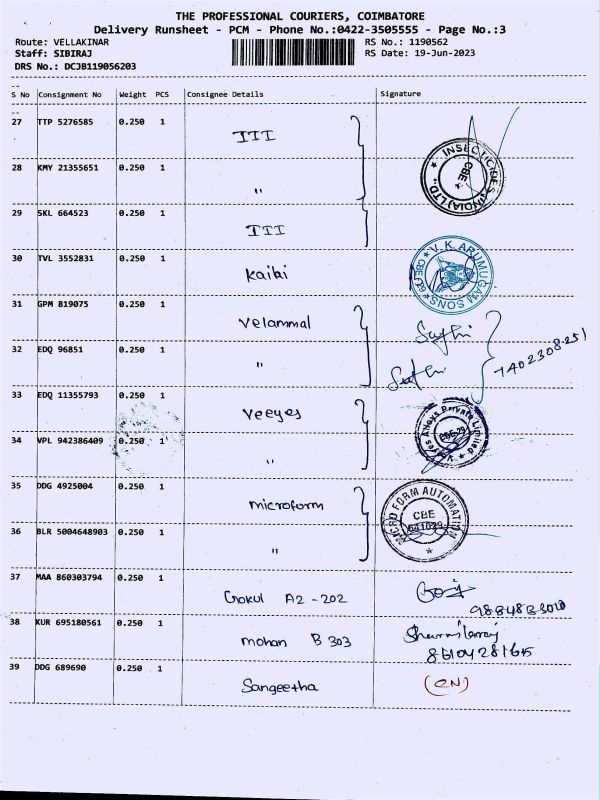 THE PROFESSIONAL COURIERS, COIMBATORE
Delivery Runsheet - PCM - Phone No.:0422-3505555 - Page No.:3
Route: VELLAKINAR RS No.: 1190562
Staff: SIBIRAJ RS Date: 19-Jun-2023
DRS No.: DCJB119056203
--
S No Consignment No Weight PCS Consignee Details Signature
--
27 TTP 5276585 0.250 1 III
28 KMY 21355651 0.250 1 "
INSECTICIDES (INDIA) LTD CBE
29 SKL 664523 0.250 1 III
30 TVL 3552831 0.250 1 Kalki
V.K. ARUMUGAM SONS
31 GPM 819075 0.250 1 Velammal
32 EDQ 96851 0.250 1 "
7402308251
33 EDQ 11355793 0.250 1 Veeyes
34 VPL 942386409 0.250 1 "
Alloys Private Limited CBE-29
35 DDG 4925004 0.250 1 microform
36 BLR 5004648903 0.250 1 "
MICRO FORM AUTOMATION CBE 641029
37 MAA 860303794 0.250 1 Gokul A2 - 202
38 KUR 695180561 0.250 1 mohan B 303
39 DDG 689690 0.250 1 Sangeetha (CN)